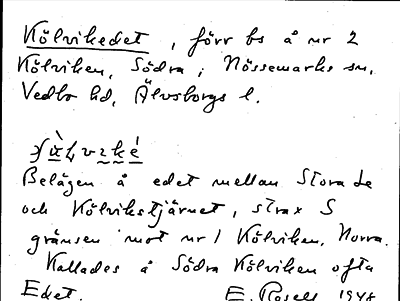 Kölvikedet, förr bs å nr 2
Kölviken, Södra, i Nössemarks sn,
Vedbo hd, Älvsborgs l.
Belägen å edet mellan Stora Le
och Kölvikstjärnet, strax S
gränsen mot nr 1 Kölviken, Norra.
Kallades å Södra Kölviken ofta
Edet. E. Rosell 1948